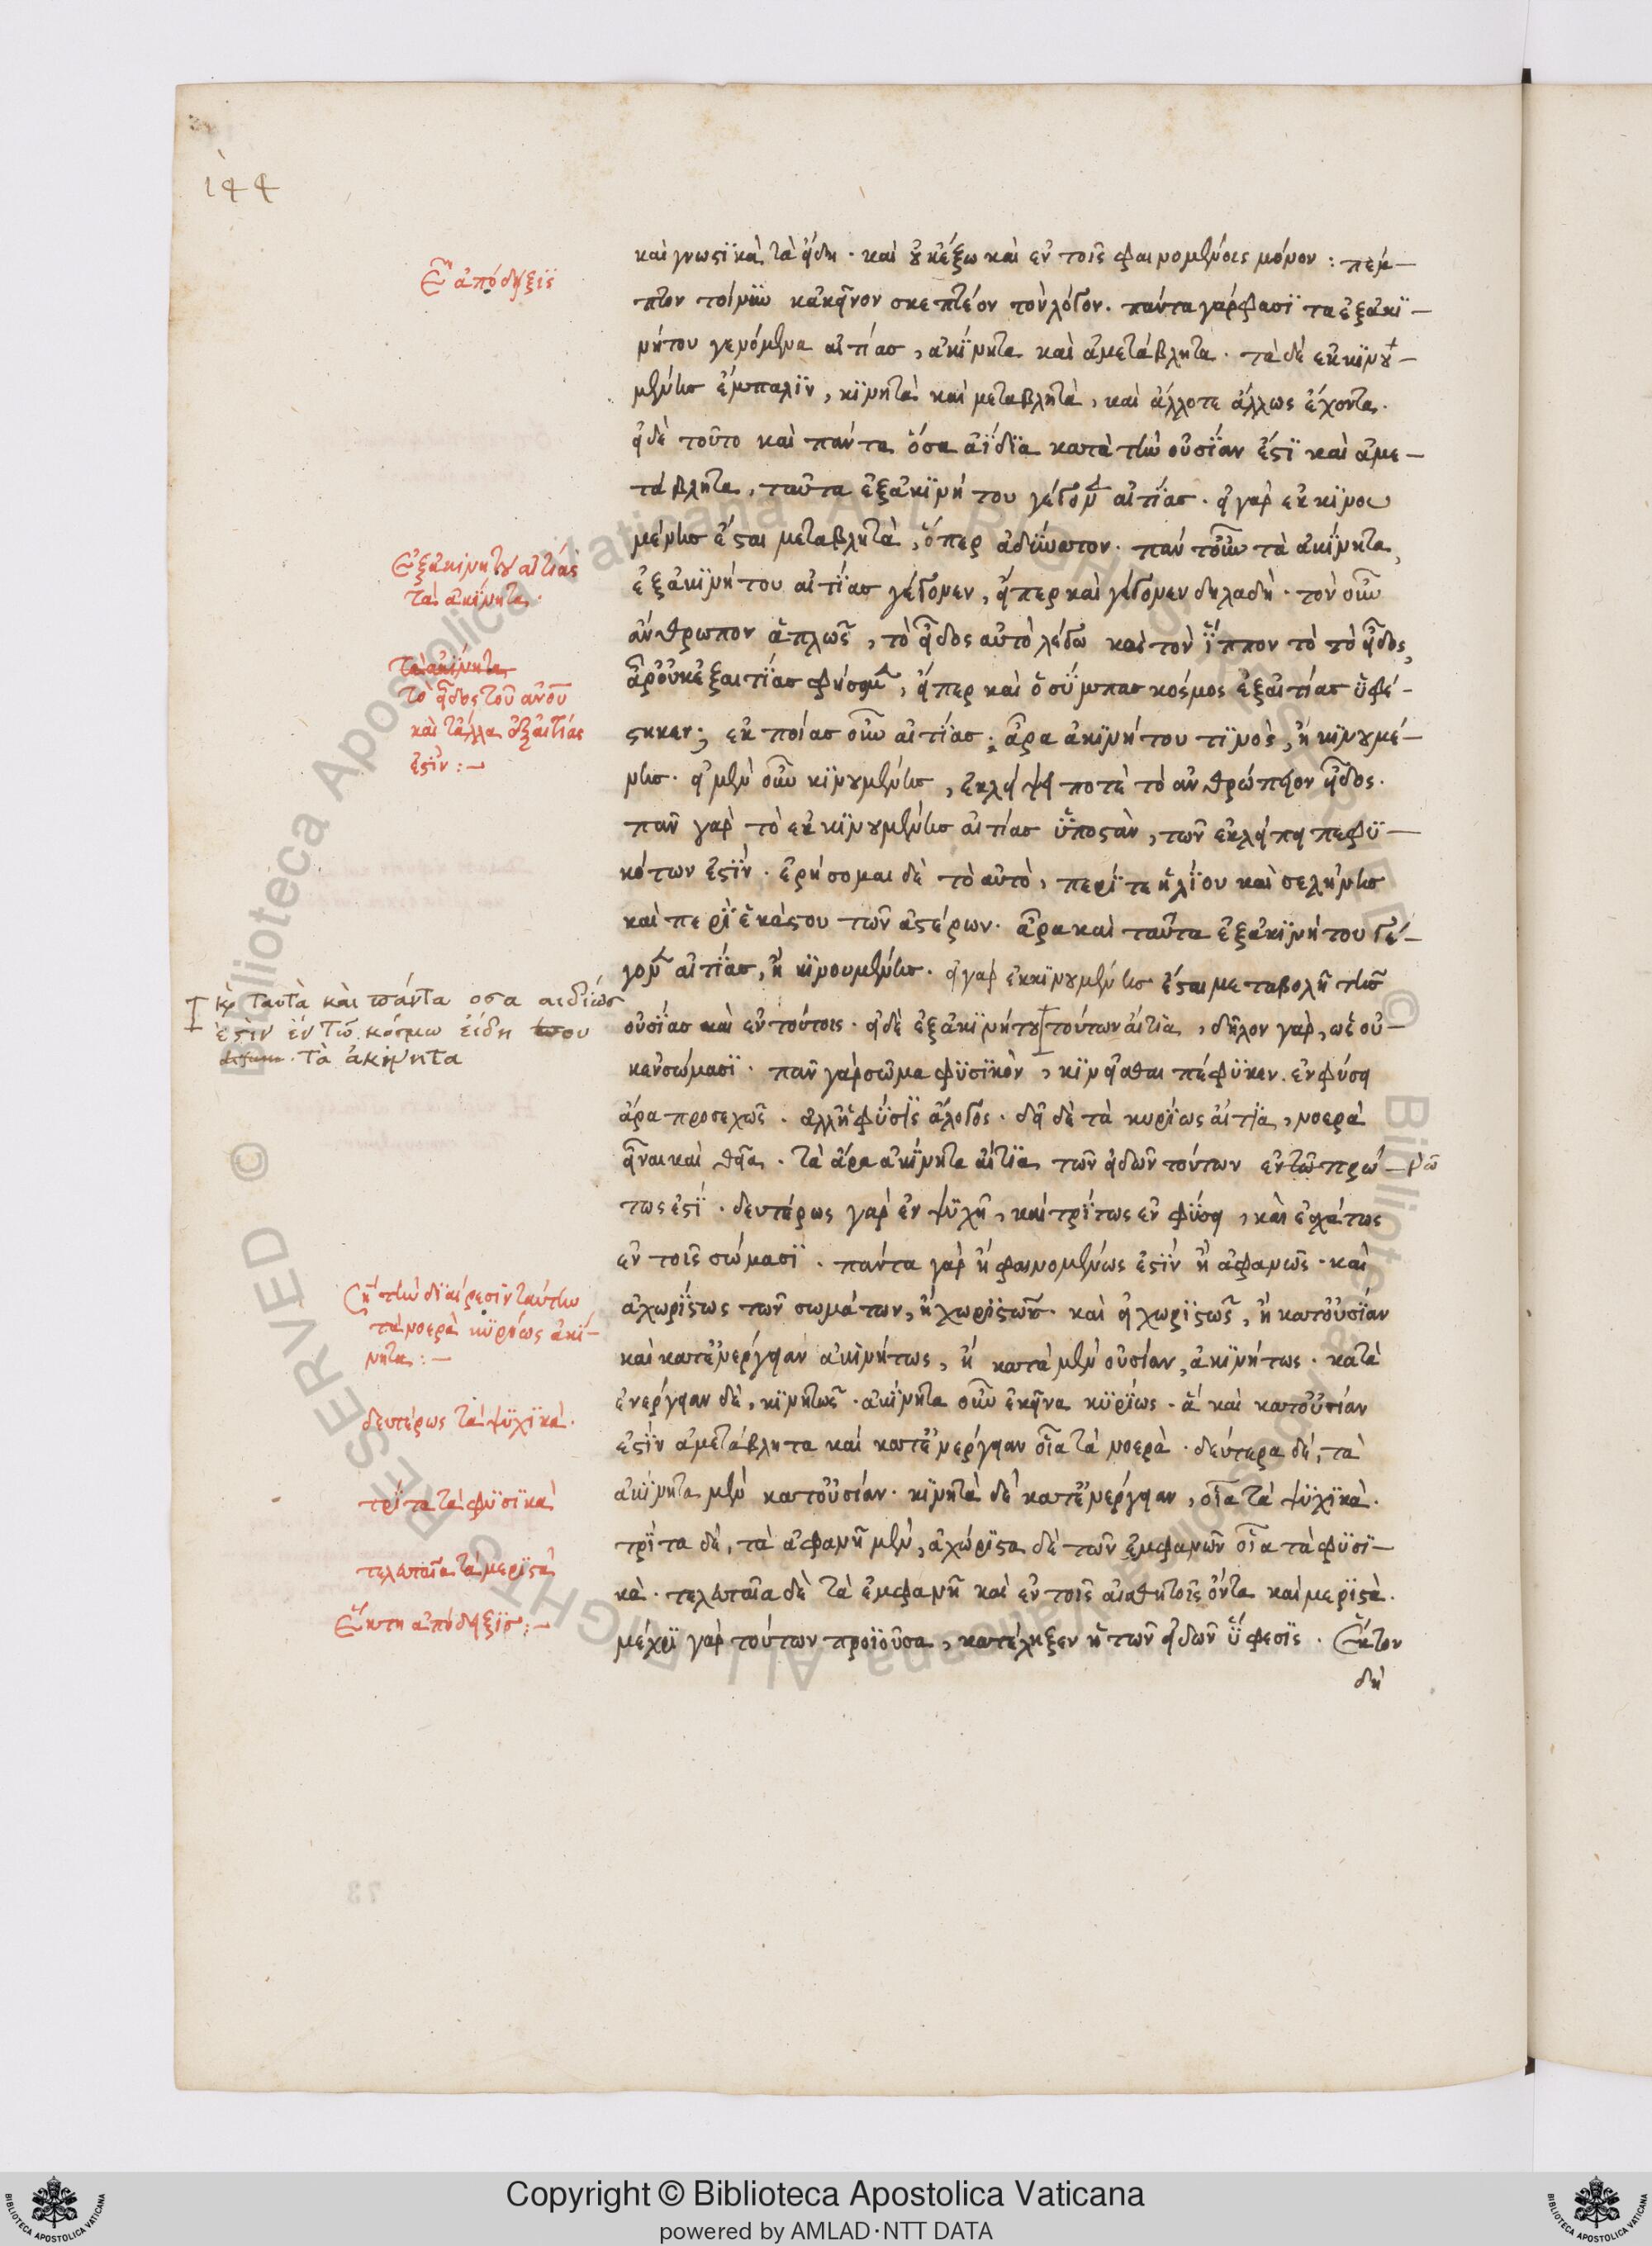 144
καὶ γνωστικὰ τὰ εἴδη· καὶ οὐκ ἔξω καὶ ἐν τοῖς φαινομένοις μόνον: πέμ–
πτον τοίνυν κἀκεῖνον σκεπτέον τὸν λόγον. πάντα γάρ φασι τὰ ἐξ ἀκι–
νήτου γενόμενα αἰτίας, ἀκίνητα καὶ ἀμετάβλητα· τὰ δὲ ἐκ κινου–
μένης ἔμπαλιν, κινητὰ καὶ μεταβλητὰ, καὶ ἄλλοτε ἄλλως ἔχοντα.
εἰ δὲ τοῦτο καὶ πάντα ὅσα ἀΐδια κατὰ τὴν οὐσίαν ἐστὶ καὶ ἀμε–
τάβλητα, ταῦτα ἐξ ἀκινήτου γέγονεν αἰτίας· εἰ γὰρ ἐκ κινου
μένης ἔσται μεταβλητὰ, ὅπερ ἀδύνατον· πάντ' οὖν τὰ ἀκίνητα,
ἐξ ἀκινήτου αἰτίας γέγονεν, εἴπερ καὶ γέγονεν δηλαδή· τὸν οὖν
ἄνθρωπον ἁπλῶς, τὸ εἶδος αὐτὸ λέγω καὶ τὸν ἵππον τὸ τὸ εἶδος,
ἆρ' οὐκ ἐξ αἰτίας φήσομεν, εἴπερ καὶ ὁ σύμπας κόσμος ἐξ αἰτίας ὑφέ–
στηκεν; ἐκ ποίας οὖν αἰτίας; ἆρα ἀκινήτου τινὸς, ἢ κινουμέ–
νης· εἰ μὲν οὖν κινουμένης, ἐκλείψει ποτὲ τὸ ἀνθρώπειον εἶδος.
πᾶν γὰρ τὸ ἐκ κινουμένης αἰτίας ὑποστὰν, τῶν ἐκλείπειν πεφυ–
κότων ἐστίν· ἐρήσομαι δὲ τὸ αὐτὸ, περί τε ἡλίου καὶ σελήνης
καὶ περὶ ἑκάστου τῶν ἀστέρων· ἆρα καὶ ταῦτα ἐξ ἀκινήτου γέ–
γονεν αἰτίας, ἢ κινουμένης· εἰ γὰρ ἐκ κινουμένης ἔσται μεταβολὴ τῆς
οὐσίας καὶ ἐν τούτοις· εἰ δὲ ἐξ ἀκινήτου τούτων αἰτία, δῆλον γὰρ, ὡς οὐ–
κ ἐν σώμασι· πᾶν γὰρ σῶμα φυσικὸν, κινεῖσθαι πέφυκεν. ἐν φύσει
ἄρα προσεχῶς· ἀλλ' ἡ φύσις ἄλογος· δεῖ δὲ τὰ κυρίως αἴτια, νοερὰ
εἶναι καὶ θεῖα· τὰ ἄρα ἀκίνητα αἴτια τῶν εἰδῶν τούτων ἐν τῶ πρώ–
τως ἐστί· δευτέρως γὰρ ἐν ψυχῆ, καὶ τρίτως ἐν φύσει, καὶ ἐσχάτως
ἐν τοῖς σώμασι· πάντα γὰρ ἢ φαινομένως ἐστὶν ἢ ἀφανῶς· καὶ
ἀχωρίστως τῶν σωμάτων, ἢ χωριστῶς· καὶ εἰ χωριστῶς, ἢ κατ' οὐσίαν
καὶ κατ' ἐνέργειαν ἀκινήτως, ἢ κατὰ μὲν οὐσίαν, ἀκινήτως· κατὰ
ἐνέργειαν δὲ, κινητῶς· ἀκίνητα οὖν ἐκεῖνα κυρίως· ἃ καὶ κατ' οὐσίαν
ἐστὶν ἀμετάβλητα καὶ κατ' ἐνέργειαν οἷα τὰ νοερὰ· δεύτερα δὲ, τὰ
ἀκίνητα μὲν κατ' οὐσίαν· κινητὰ δὲ κατ' ἐνέργειαν, οἷα τὰ ψυχικὰ.
τρίτα δὲ, τὰ ἀφανῆ μὲν, ἀχώριστα δὲ τῶν ἐμφανῶν οἷα τὰ φυσι–
κὰ· τελευταῖα δὲ τὰ ἐμφανῆ καὶ ἐν τοῖς αἰσθητοῖς ὄντα καὶ μεριστὰ.
μέχρι γὰρ τούτων προϊοῦσα, κατέληξεν ἡ τῶν εἰδῶν ὕφεσις· Ἕκτον
δὴ
Ε´´ ἀπόδειξις
Ἐξ ἀκινήτου αἰτίας
τὰ ἀκίνητα.
τὰ ἀκίνητα
τὸ εἶδος τοῦ ἀνου
καὶ τἆλλα ἐξ αἰτίας
ἐστίν:—
καὶ ταυτὰ καὶ πάντα οσα αιδίως
ἐστὶν ἐν τῶ κόσμω εἴδη
τὰ ἀκίνητα
νῶ
τὴν διαίρεσιν ταύτην
τὰ νοερὰ κυρίως ἀκί–
νητα:—
δευτέρως τὰ ψυχικὰ.
τρίτα τὰ φυσικὰ
τελευταῖα τὰ μεριστὰ
Ἕκτη ἀπόδειξις:—
Copyright © Biblioteca Apostolica Vaticana
powered by AMLAD·NTT DATA